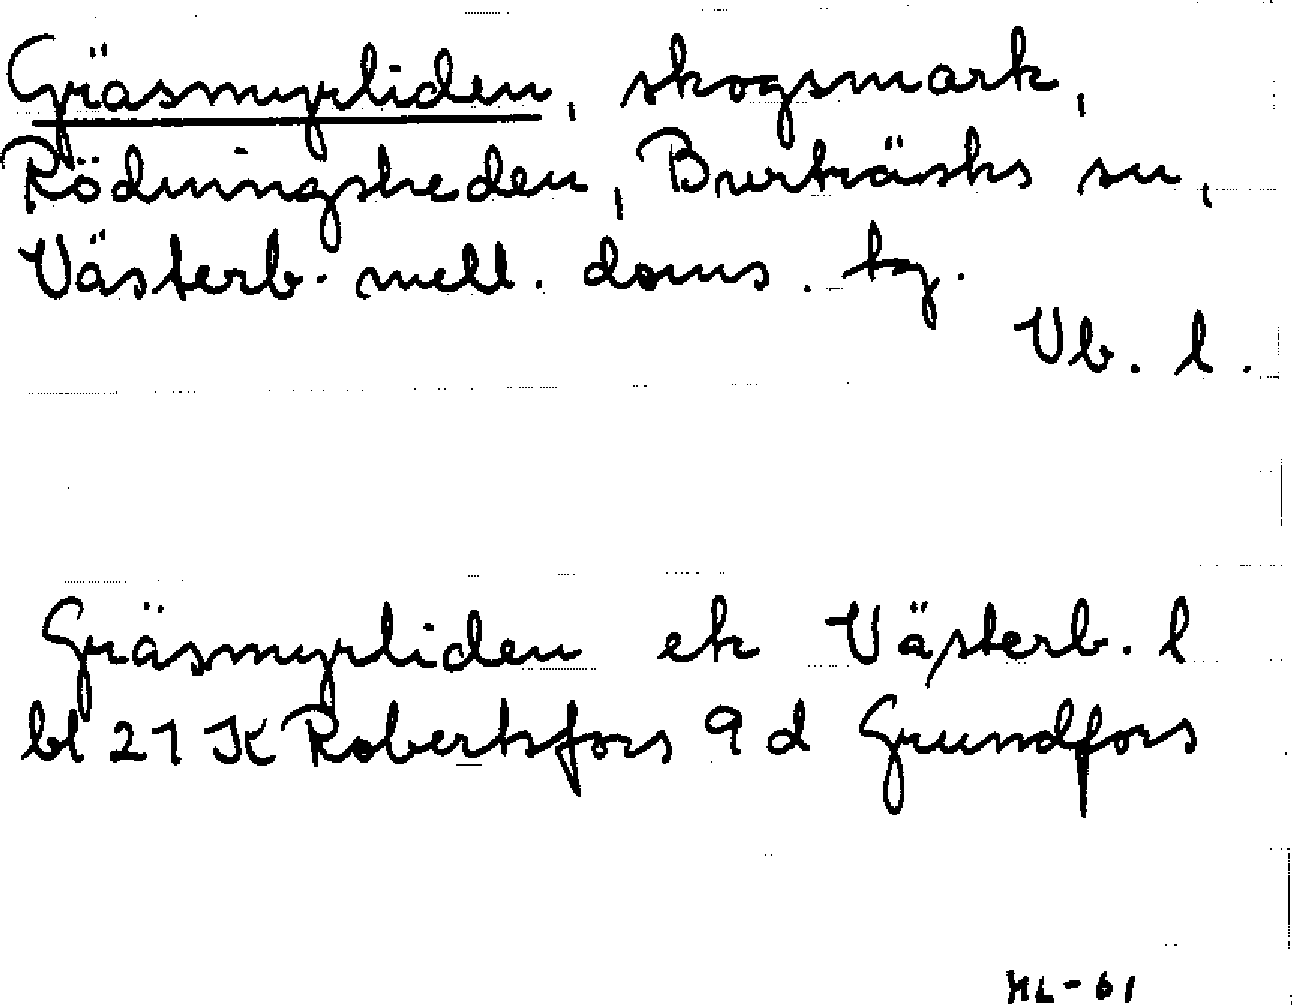 Gräsmyrliden, skogsmark,
Rödningsheden, Burträsks sn,
Västerb. mell. doms. tg.
Vb. l.
Gräsmyrliden ek Västerb. l
bl 21 K Robertsfors 9 d Grundfors
HL-61